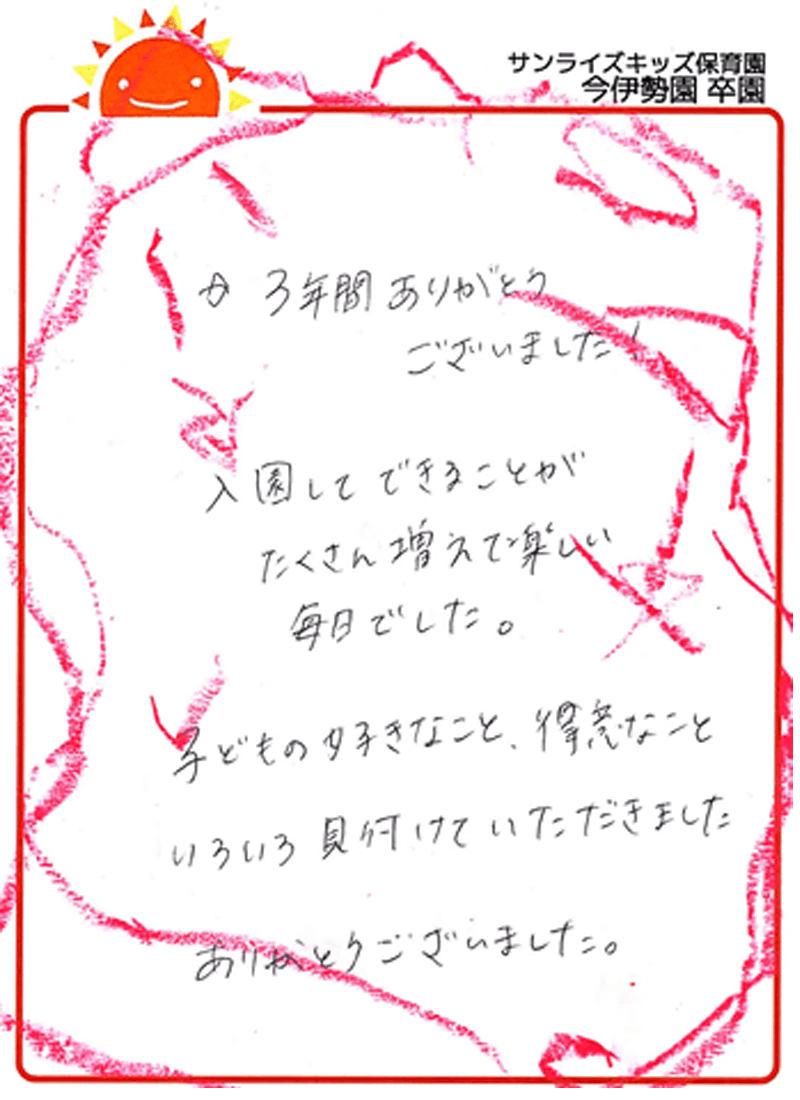 サンライズキッズ保育園
今伊勢園 卒園
3年間 ありがとう
ございました!
入園して できることが
たくさん 増えて 楽しい
毎日でした。
子どもの好きなこと、得意なこと
いろいろ 見付けて いただきました
ありがとうございました。